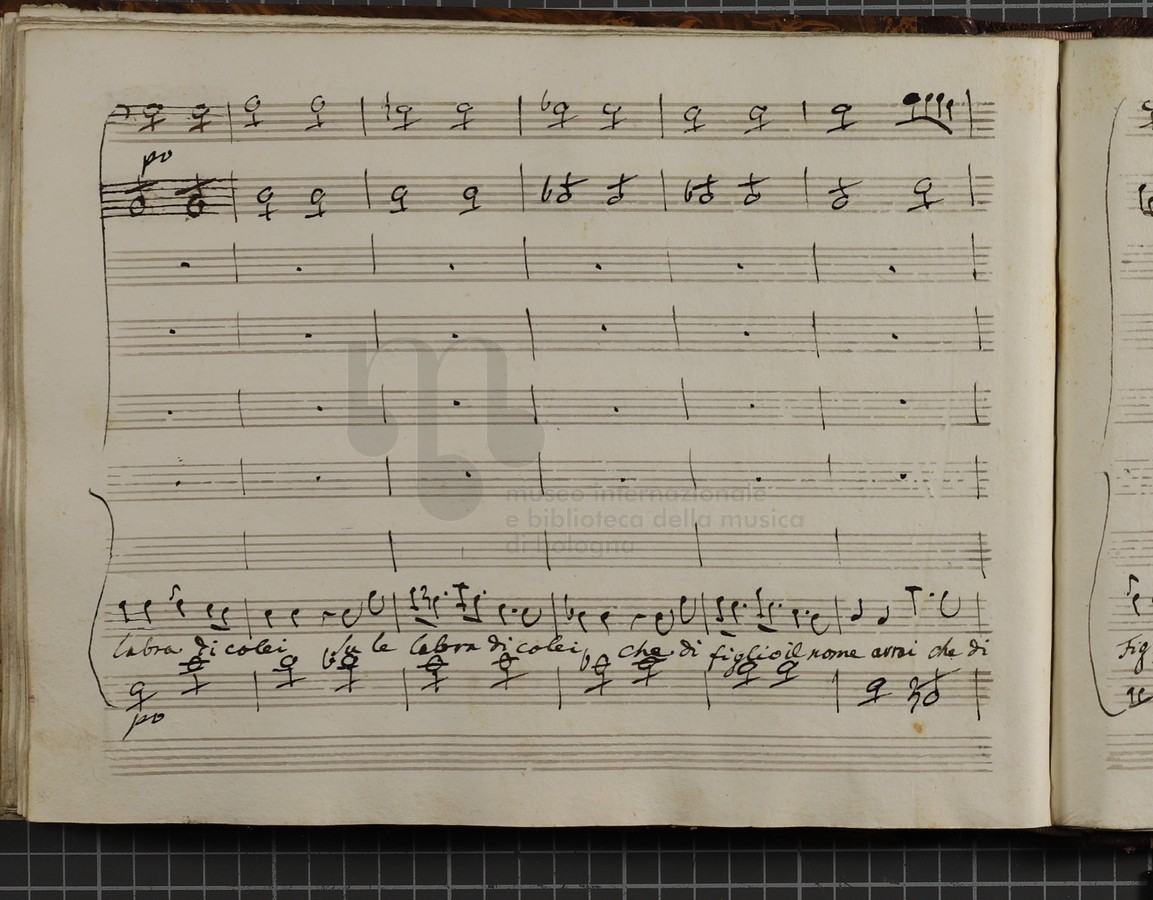 po
museo internazionale
e biblioteca della musica
di bologna
labra di colei su le labra di colei che di figlio il nome avrai che di
Fig
po